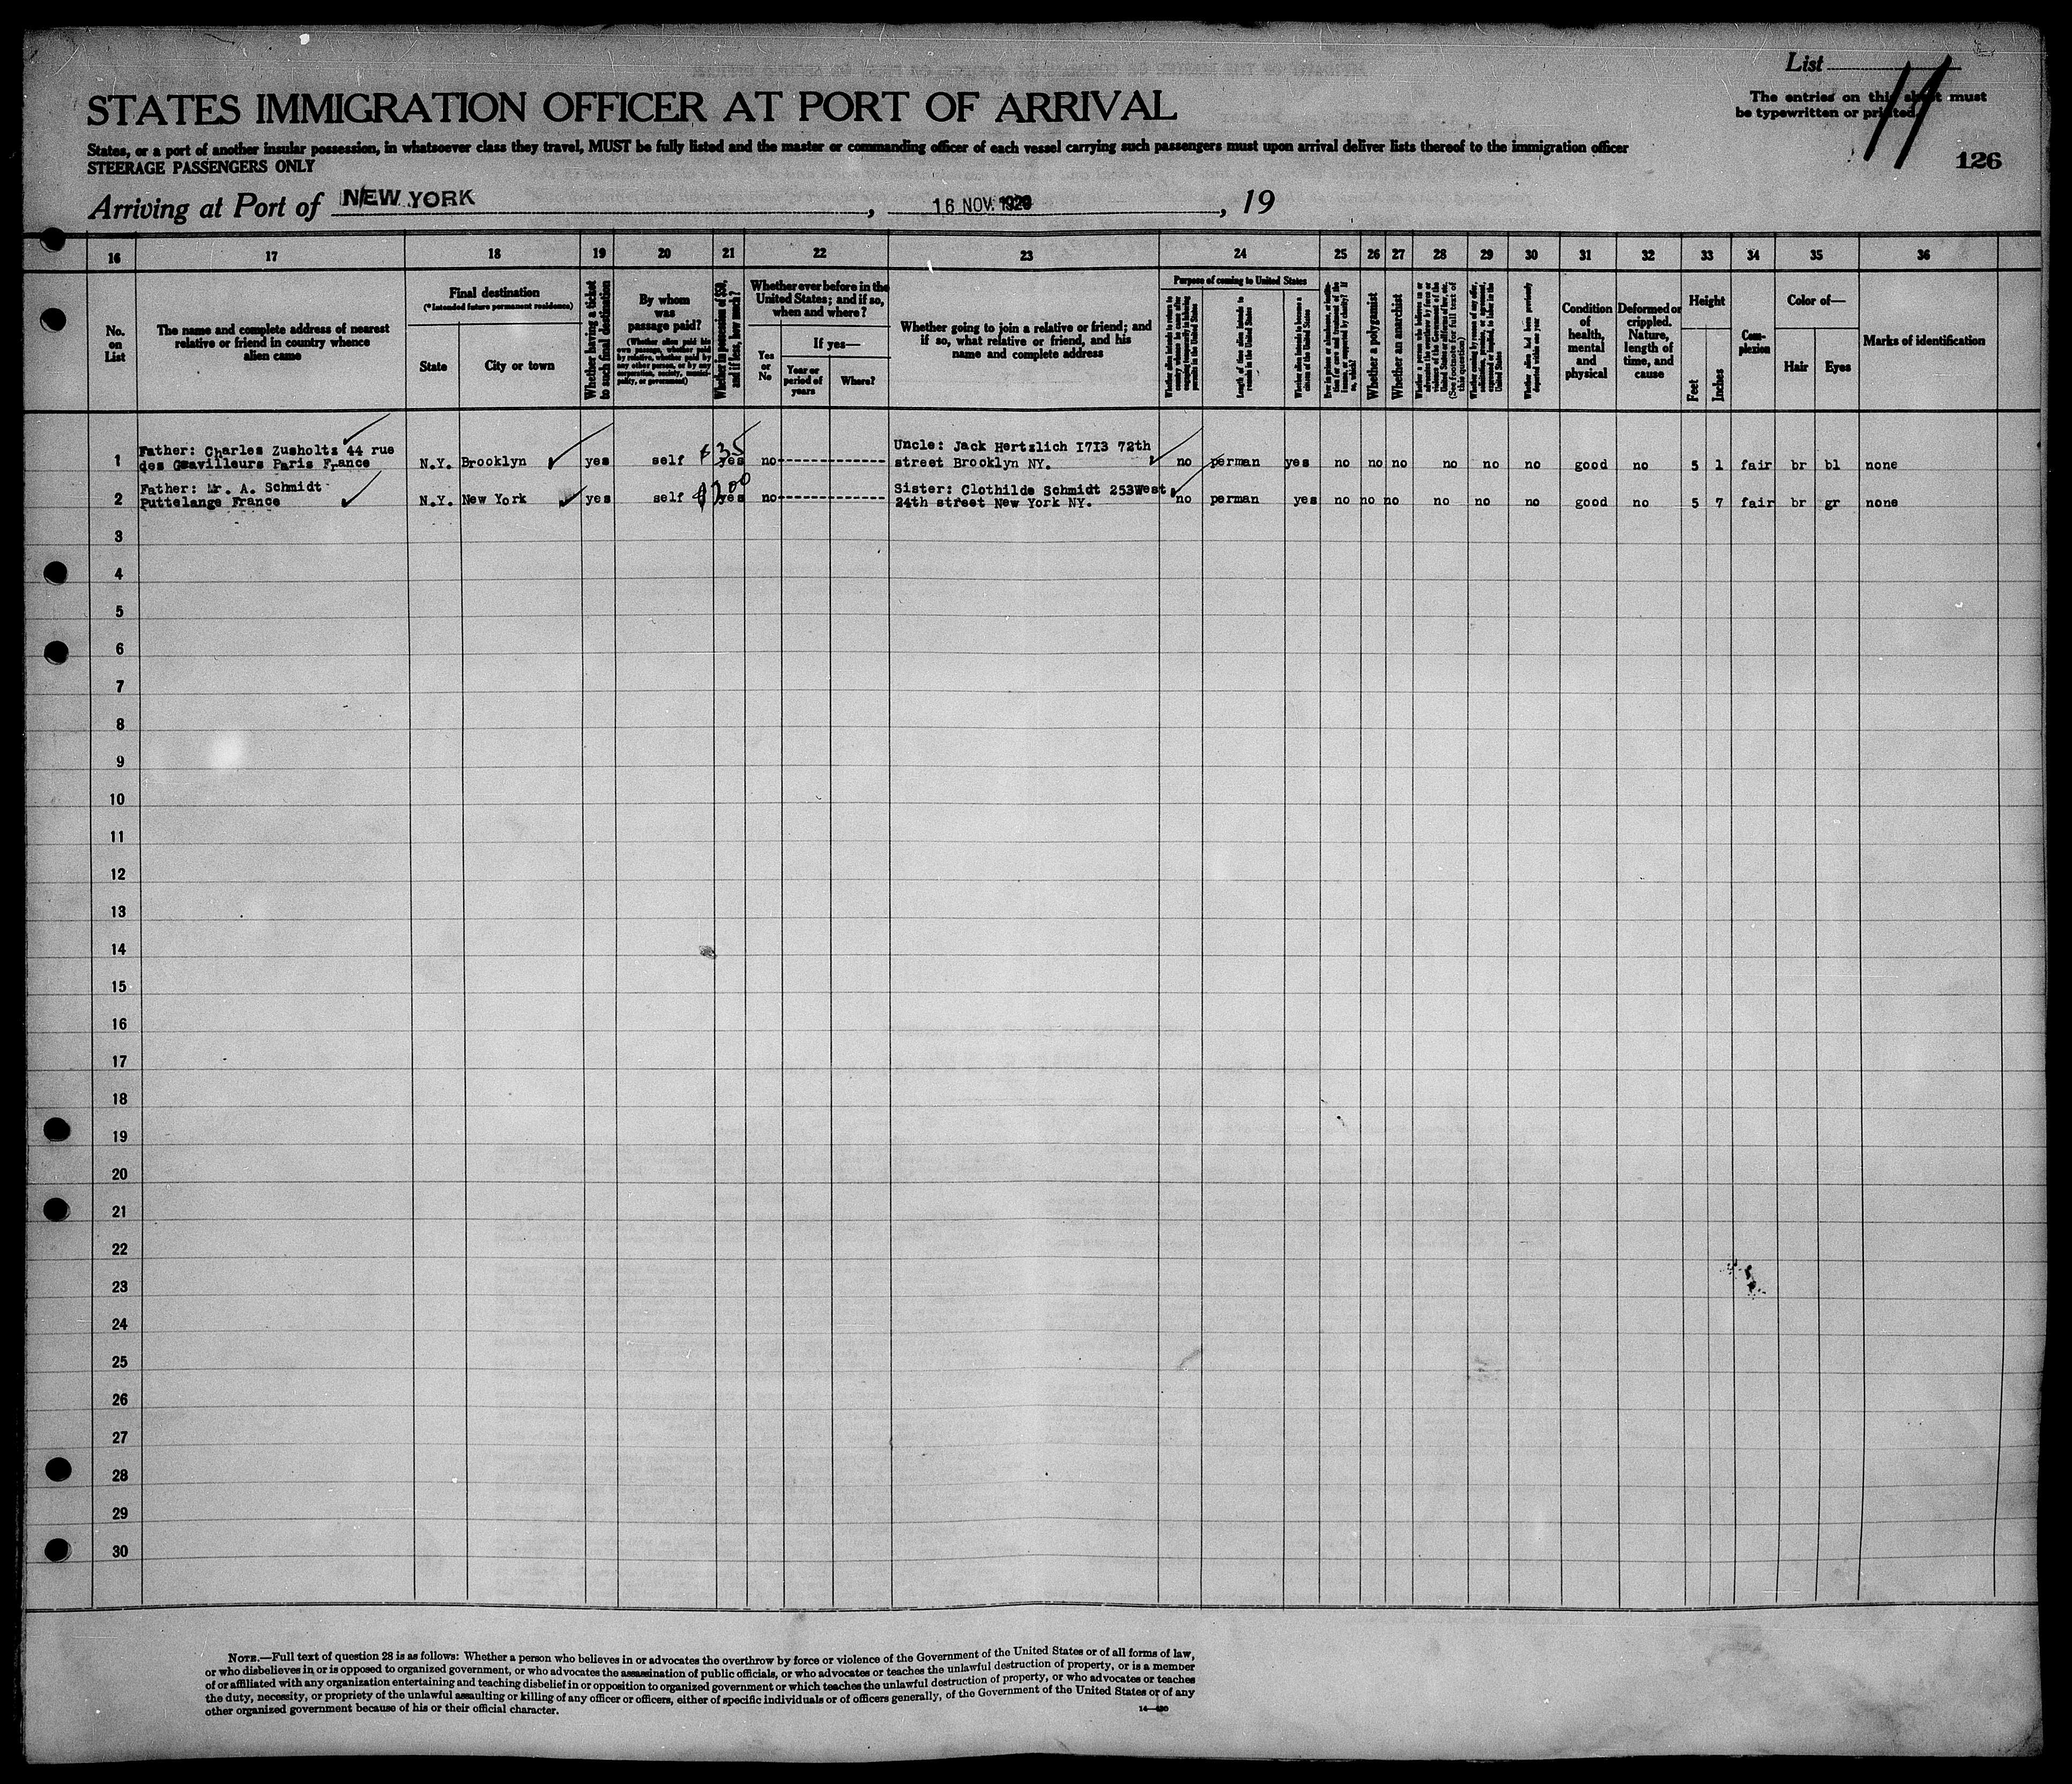 List 11
The entries on this sheet must
be typewritten or printed.
126
STATES IMMIGRATION OFFICER AT PORT OF ARRIVAL
States, or a port of another insular possession, in whatsoever class they travel, MUST be fully listed and the master or commanding officer of each vessel carrying such passengers must upon arrival deliver lists thereof to the immigration officer
STEERAGE PASSENGERS ONLY
Arriving at Port of NEW YORK, 16 NOV. , 19
16 17 18 19 20 21 22 23 24 25 26 27 28 29 30 31 32 33 34 35 36
No.
on
List
The name and complete address of nearest
relative or friend in country whence
alien came
Final destination
(*Intended future permanent residence)
State
City or town
Whether having a ticket
to such final destination
By whom
was
passage paid?
(Whether alien paid his
own passage, whether paid
by relative, whether paid by
any other person, or by any
corporation, society, munici-
pality, or government)
Whether in possession of $50,
and if less, how much?
Whether ever before in the
United States; and if so,
when and where?
Yes
or
No
If yes—
Year or
period of
years
Where?
Whether going to join a relative or friend; and
if so, what relative or friend, and his
name and complete address
Purpose of coming to United States
Length of time alien intends to
remain in the United States
Whether alien intends to become a
citizen of the United States
Whether a polygamist
Whether an anarchist
Whether alien had been previously
deported within one year
Condition
of
health,
mental
and
physical
Deformed or
crippled.
Nature,
length of
time, and
cause
Height
Feet
Inches
Com-
plexion
Color of—
Hair
Eyes
Marks of identification
1 Father: Charles Zusholtz 44 rue
des Gravilleurs Paris France N.Y. Brooklyn yes self $35 yes no----------- Uncle: Jack Hertzlich 1713 72th
street Brooklyn NY. no perman yes no no no no no no good no 5 1 fair br bl none
2 Father: Mr. A. Schmidt
Puttelange France N.Y. New York yes self $200 yes no----------- Sister: Clothilde Schmidt 253West
24th street New York NY. no perman yes no no no no no no good no 5 7 fair br gr none
3
4
5
6
7
8
9
10
11
12
13
14
15
16
17
18
19
20
21
22
23
24
25
26
27
28
29
30
NOTE.—Full text of question 28 is as follows: Whether a person who believes in or advocates the overthrow by force or violence of the Government of the United States or of all forms of law,
or who disbelieves in or is opposed to organized government, or who advocates the assassination of public officials, or who advocates or teaches the unlawful destruction of property, or is a member
of or affiliated with any organization entertaining and teaching disbelief in or opposition to organized government or which teaches the unlawful destruction of property, or who advocates or teaches
the duty, necessity, or propriety of the unlawful assaulting or killing of any officer or officers, either of specific individuals or of officers generally, of the Government of the United States or of any
other organized government because of his or their official character.